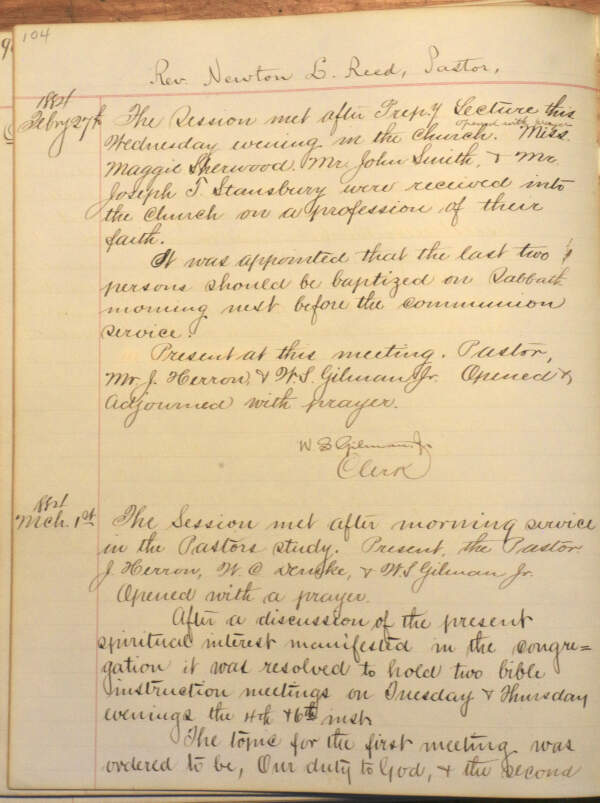 104
Rev. Newton L. Reed, Pastor,
1884
Febry 27th
The Session met after Prep.y Lecture this
opened with prayer
Wednesday evening in the Church. Miss
Maggie Sherwood, Mr. John Smith, & Mr.
Joseph T. Stansbury were received into
the Church on a profession of their
faith.
It was appointed that the last two
persons should be baptized on Sabbath
morning next before the communion
service.
Present at this meeting. Pastor,
Mr J. Herron, & W.S. Gilman Jr. Opened &
adjourned with prayer.
W S Gilman Jr
Clerk
1884
Mch. 1st
The Session met after morning service
in the Pastors study. Present, the Pastor
J. Herron, W. C & W S Gilman Jr.
Opened with a prayer.
After a discussion of the present
spiritual interest manifested in the congre=
gation it was resolved to hold two bible
instruction meetings on Tuesday & Thursday
evenings the 4th & 6th inst.
The topic for the first meeting was
ordered to be, Our duty to God, & the second